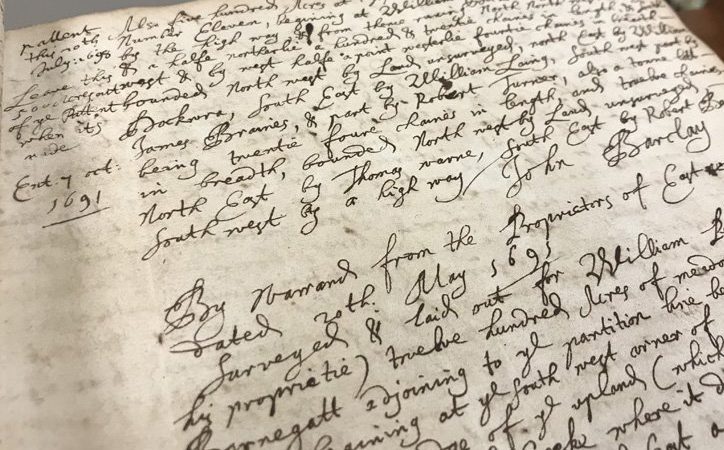 Also five hundred Acres at
Number Eleven, beginning at William
by the high way & from thence
& a halfe northerlie a hundred & twentie chaines in length &
west & by west halfe a point westerlie fourtie chaines in breath
bounded North west by Land unsurveyed, north East by William
Dockwra, South East by William Laing, South west part by
James Braines, & part by Robert Turner, also a towne lott
being twentie foure chaines in length, and twelve chaines
in breadth, bounded North west by Land unsurveyed
North East by Thomas warne, South East by Robert B
South west by a high way John Barclay
this 10th
July: 1698
Leave this
of ye Patent
when its
Ent. 7 oct:
1691
By Warrand from the Proprietors of East
dated 20th. May 1691
Surveyed & laid out for William
his proprietie) twelve hundred Acres of meado
Barnegatt adjoining to ye partition line be
beginning at ye South west corner of
of ye upland (which
where it